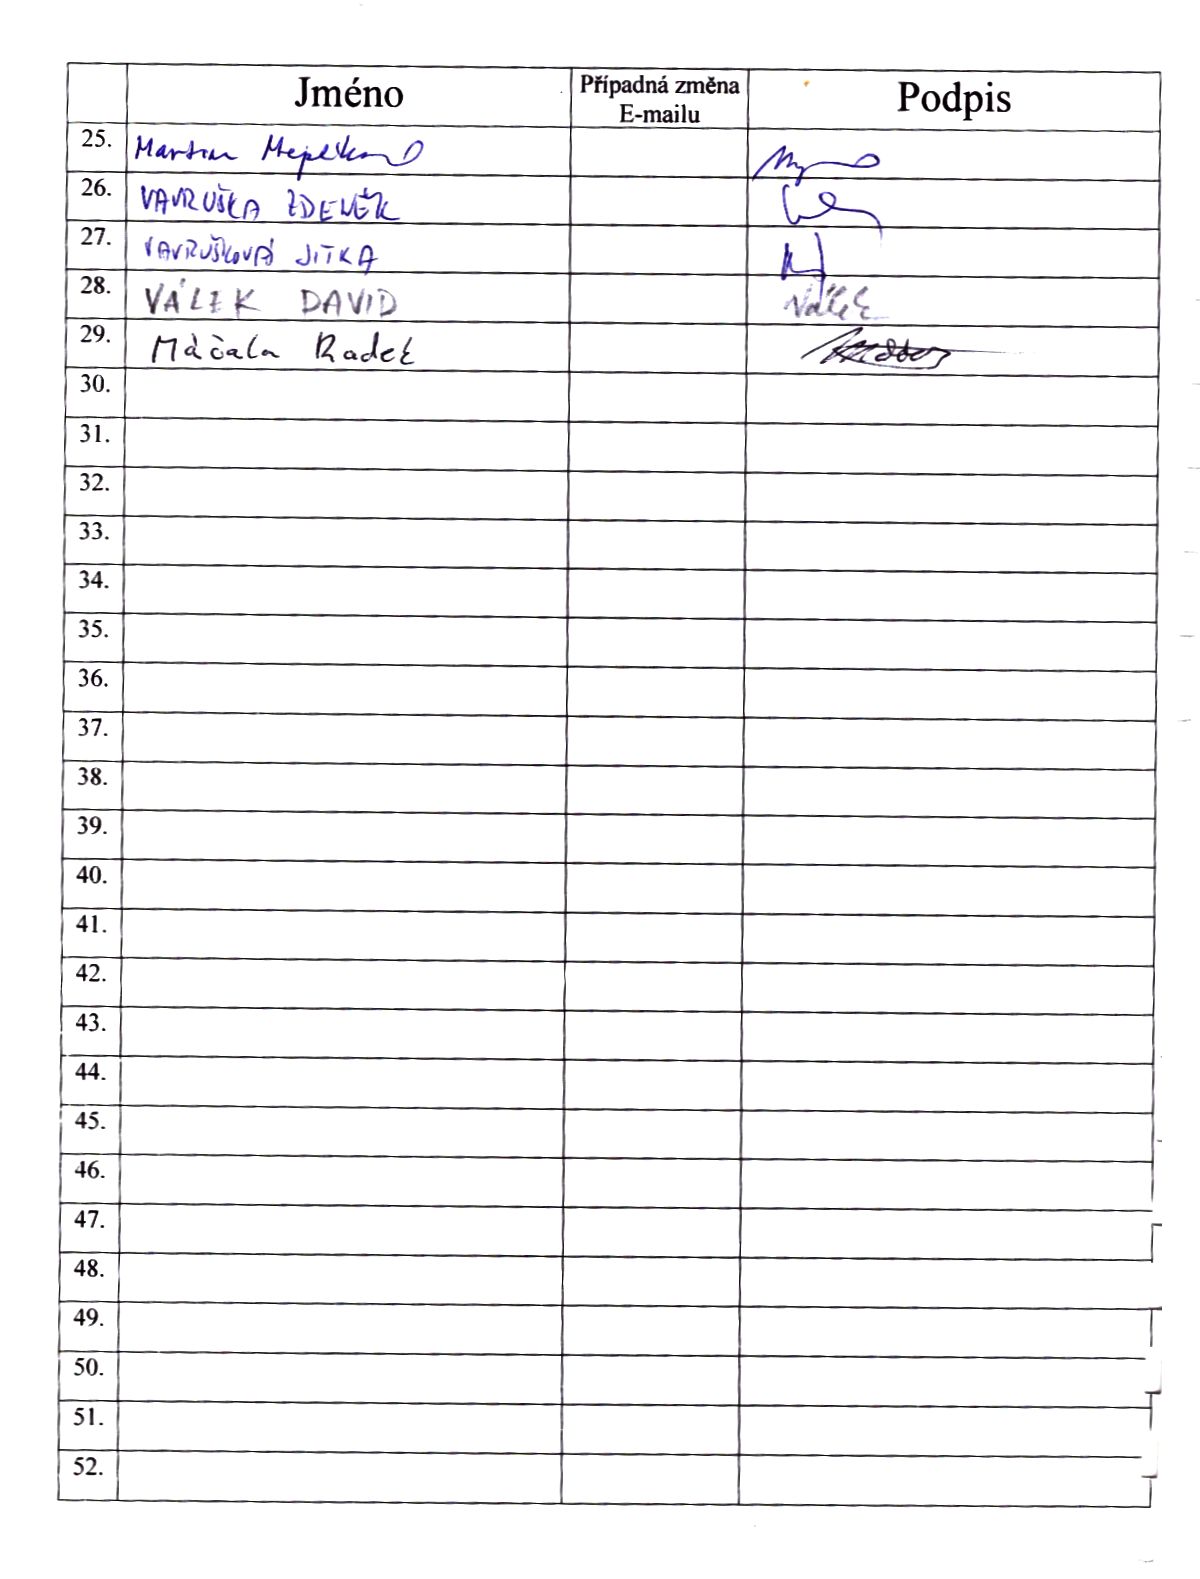 Jméno Případná změna E-mailu Podpis
25. Martin
26. VAVRUŠKA ZDENĚK
27. VAVRUŠKOVÁ JITKA
28. VÁLEK DAVID Válek
29. Máčala Radek
30.
31.
32.
33.
34.
35.
36.
37.
38.
39.
40.
41.
42.
43.
44.
45.
46.
47.
48.
49.
50.
51.
52.